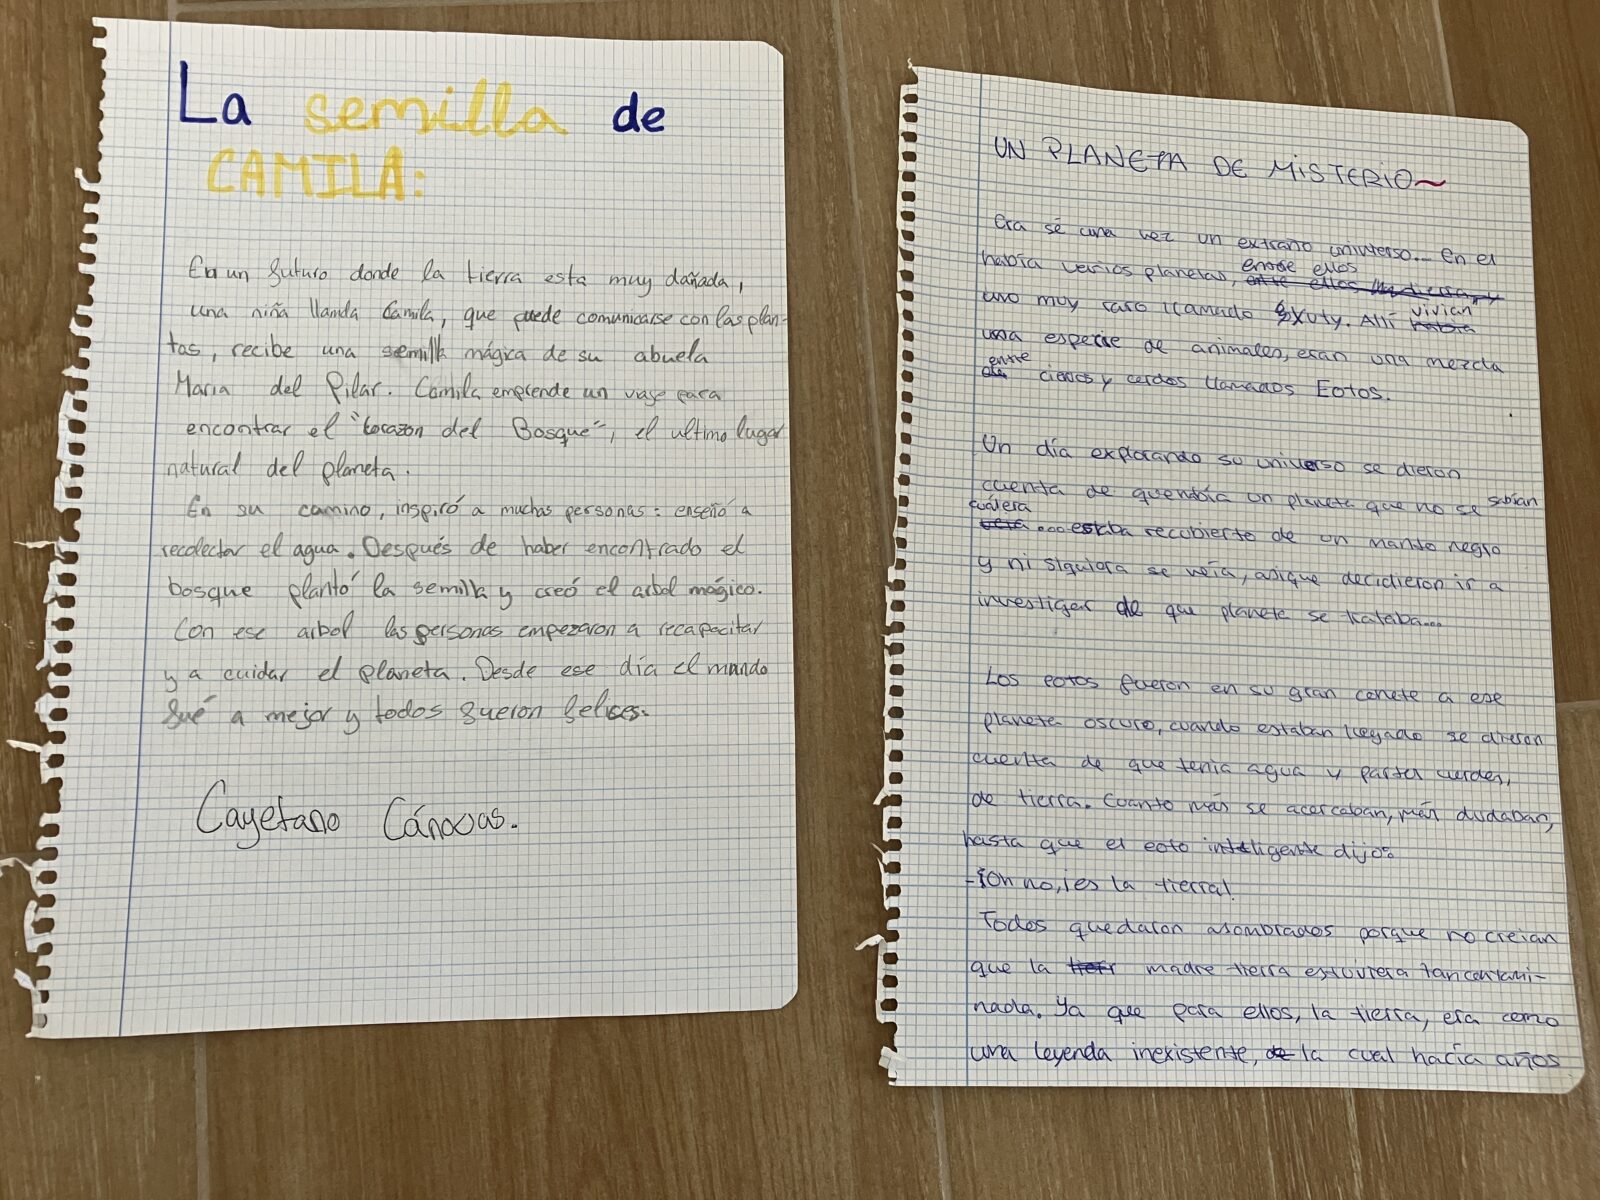 La semilla de
CAMILA:
En un futuro donde la tierra esta muy dañada,
una niña llamda Camila, que puede comunicarse con las plan-
tas, recibe una semilla mágica de su abuela
Maria del Pilar. Camila emprende un viaje para
encontrar el "Corazon del Bosque", el ultimo lugar
natural del planeta.
En su camino, inspiró a muchas personas: enseñó a
recolectar el agua. Después de haber encontrado el
bosque plantó la semilla y creó el arbol mágico.
Con ese arbol las personas empezaron a recapacitar
y a cuidar el planeta. Desde ese día el mundo
fué a mejor y todos fueron felices.
Cayetano Cánovas.
UN PLANETA DE MiSTERIO~
Era sé una vez un extraño universo... En el
había varios planetas, entre ellos
uno muy raro llamado Exuty. Allí vivian
una especie de animales, eran una mezcla
entre ciervos y cerdos llamados Eotos.
Un día explorando su universo se dieron
cuenta de que había un planeta que no se sabían
cuál era ... estaba recubierto de un manto negro
y ni siquiera se veía, asique decidieron ir a
investigar de que planeta se trataba...
Los eotos fueron en su gran cohete a ese
planeta oscuro, cuando estaban llegado se dieron
cuenta de que tenia agua y partes verdes,
de tierra. Cuanto más se acercaban, más dudaban,
hasta que el eoto inteligente dijo:
-¡Oh no, ¡es la tierra!
Todos quedaron asombrados porque no creían
que la madre tierra estuviera tan contami-
nada. Ya que para ellos, la tierra, era como
una leyenda inexistente, la cual hacía años